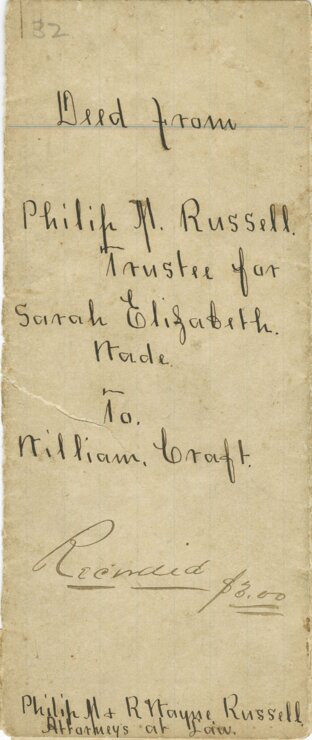 132
Deed from
Philip M. Russell.
Trustee for
Sarah Elizabeth.
Wade.
To.
William. Craft.
Recorded $3.00
Philip M & R Wayne Russell.
Attorneys at Law.